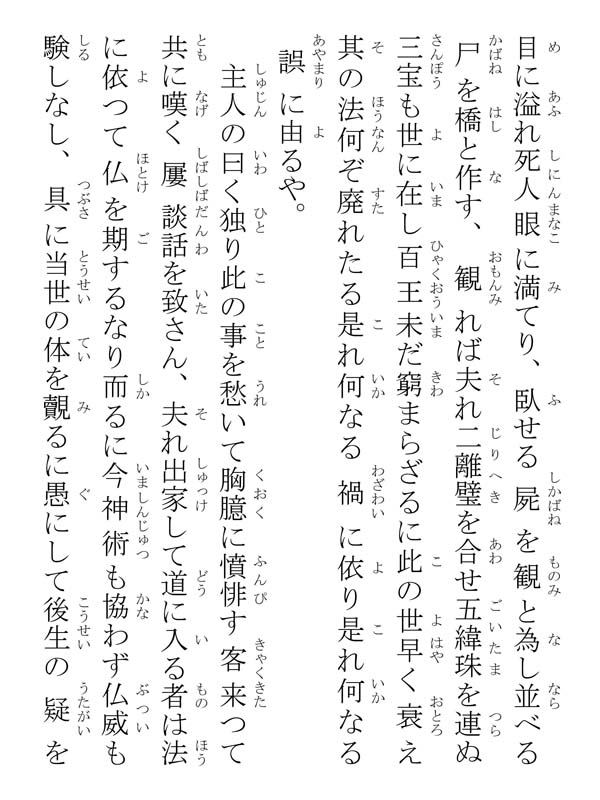 目に溢れ死人眼に満てり、臥せる屍を観と為し並べる
尸を橋と作す、観れば夫れ二離璧を合せ五緯珠を連ぬ
三宝も世に在し百王未だ窮まらざるに此の世早く衰え
其の法何ぞ廃れたる是れ何なる禍に依り是れ何なる
誤に由るや。
主人の曰く独り此の事を愁いて胸臆に憤悱す客来つて
共に嘆く屢談話を致さん、夫れ出家して道に入る者は法
に依つて仏を期するなり而るに今神術も協わず仏威も
験しなし、具に当世の体を覿るに愚にして後生の疑を